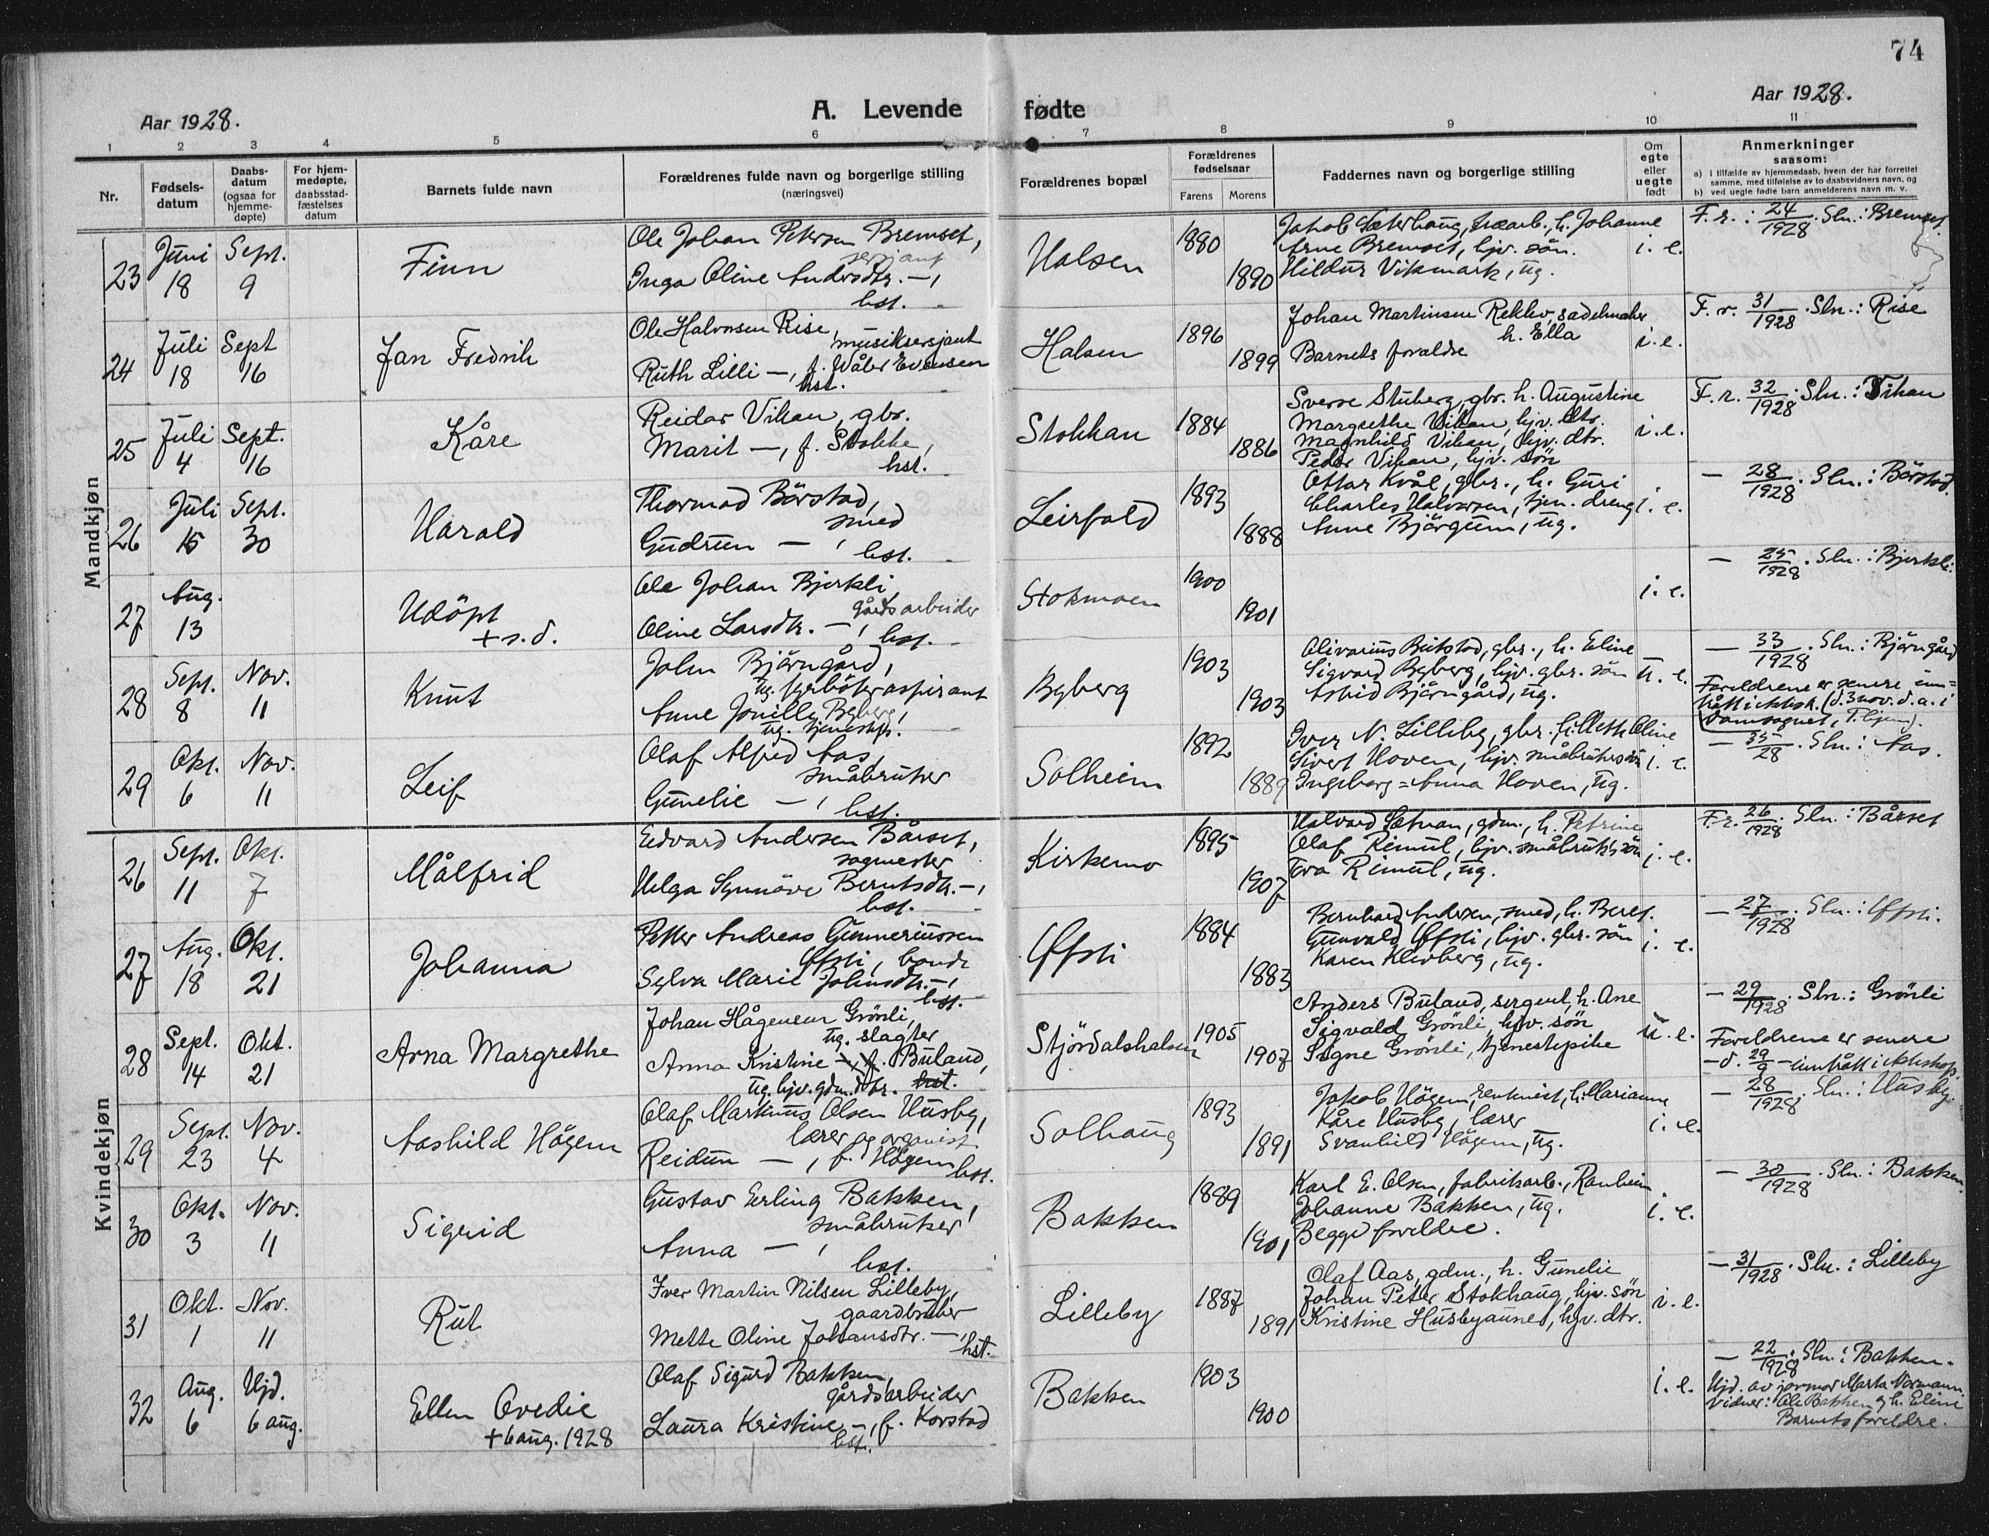 74
Aar 1928.
A. Levende fødte
Aar 1928.
1 2 3 4 5 6 7 8 9 10 11
Nr.
Fødsels-
datum
Daabs-
datum
(ogsaa for
hjemme-
døpte)
For hjem-
medøpte,
daabsstad-
fæstelses
datum
Barnets fulde navn
Forældrenes fulde navn og borgerlige stilling
(næringsvei)
Forældrenes bopæl
Forældrenes
fødselsaar
Farens Morens
Faddernes navn og borgerlige stilling
Om
egte
eller
uegte
født
Anmerkninger
saasom:
a) i tilfælde av hjemmedaab, hvem der har forrettet
samme, med tilføielse av to daabsvidners navn, og
b) ved uegte fødte barn anmelderens navn m. v.
Mandkjøn
23 Juni 18 Sept. 9
Finn
Ole Johan Petersen Bremset,
sersjant
Inga Oline Andersdtr. —,
hst.
Halsen
1880
1890
Jakob Sæterhaug, træarb., h. Johanne
Arne Bremset, hjv. søn.
Hildur Vikmark, ug.
i. e.
F. r.: 24/1928. Sln.: Bremset
24 Juli 18 Sept 16
Jan Fredrik
Ole Halvorsen Rise,
musiksersjant
Ruth Lilli —, f. Wåler Evensen
hst.
Halsen
1896
1899
Johan Martinsen Rekkev, sadelmaker
h. Ella
Barnets forældre
i. e.
F. r. 31/1928. Sln.: Rise
25 Juli 4 Sept. 16
Kåre
Reidar Vikan, gbr.
Marit —, f. Stokke,
hst.
Stokkan
1884
1886
Sverre Stuberg, gbr. h. Augustine
Margrethe Vikan, hjv. dtr.
Magnhild Vikan, hjv. dtr.
Peder Vikan, hjv. søn
i. e.
F. r. 32/1928. Sln.: Vikan
26 Juli 15 Sept. 30
Harald
Thormod Börstad,
smed
Gudrun —,
hst.
Leirfald
1893
1888
Ottar Kvål, gbr., h. Guri
Charles Halvorsen, tjen. dreng
Anne Bjørgum, ug.
i. e.
— 28/1928. Sln.: Börstad.
27 Aug. 13
Udöpt
+ s. d.
Ole Johan Bjerkli
gårdsarbeider
Oline Larsdtr. —,
hst.
Stokmoen
1900
1901
i. e.
— 25/1928. Sln.: Bjerkli.
28 Sept. 8 Nov. 11
Knut
John Bjørngård,
ug. fyrbøteraspirant
Anne Jonilly Byberg,
ug. tjenestep.
Byberg
1903
1903
Olivarius Butstad, gbr., h. Eline
Sigvard Byberg, hjv. gbr. søn
Astrid Bjørngård, ug.
u. e.
— 33/1928. Sln.: Bjørngård
Foreldrene er senere inn-
trått i ektesk. (d. 3 nov. d. a. i
Domsognet, T.hjem).
29 Okt. 6 Nov. 11
Leif
Olaf Alfred Aas,
småbruker
Gunelie —,
hst.
Solheim
1892
1889
Iver N. Lilleby, gbr. h. Mette Oline
Sivert Hoven, hjv. småbrukersøn
Ingeborg=Anna Hoven, ug.
i. e.
— 35/28. Sln.: Aas.
Kvindekjøn
26 Sept. 11 Okt. 7
Målfrid
Edvard Andersen Bårset,
sagmester
Helga Synnöve Berntsdtr. —,
hst.
Kirkemo
1895
1907
Halvard Sætnan, gdm., h. Petrine
Olaf Rimul, hjv. småbruk. søn
Eva Rimul, ug.
i. e.
F. r. 26/1928. Sln.: Bårset
27 Aug. 18 Okt. 21
Johanna
Petter Andreas Gunneriussen
Øfsti, bonde
Sylva Marie Johnsdtr. —,
hst.
Øfsti
1884
1883
Bernhard Andersen, smed, h. Beret.
Gunvald Øfsti, hjv. gbr. søn
Karen Klevberg, ug.
i. e.
— 27/1928. Sln.: Øfsti.
28 Sept. 14 Okt. 21
Arna Margrethe
Johan Hågensen Grönli,
ug. slagter
Anna Kristine — f. Buland,
ug. hjv. gdm. dtr. hst.
Stjørdalshalsen
1905
1907
Anders Buland, sergent, h. Ane
Sigvald Grönli, hjv. søn
Signe Grönli, tjenestepike
u. e.
— 29/1928. Sln.: Grönli
Foreldrene er senere
— d. 29/9 — inntrått i ektesk.
29 Sept. 23 Nov. 4
Aashild Högem
Olaf Markuus Olsen Husby,
lærer og organist
Reidun —, f. Högem
hst.
Solhaug
1893
1891
Jakob Högem, rentenist, h. Marianne
Kåre Husby, lærer
Svanhild Högem, ug.
i. e.
— 28/1928. Sln.: Husby.
30 Okt. 3 Nov. 11
Sigrid
Gustav Erling Bakken,
småbruker
Anna —,
hst.
Bakken
1889
1901
Karl E. Olsen, fabrikarb., Ranheim
Johanne Bakken, ug.
Begge foreldre.
i. e.
— 30/1928. Sln.: Bakken.
31 Okt. 1 Nov. 11
Rut
Iver Martin Nilsen Lilleby,
gaardbruker
Mette Oline Johansdtr. —,
hst.
Lilleby
1887
1891
Olaf Aas, gdm., h. Gunelie
Johan Peter Stokhaug, hjv. søn
Kristine Husbyaunet, hjv. dtr.
i. e.
— 31/1928. Sln.: Lilleby
32 Aug. 6 Hjd. 6 aug.
Ellen Ovedie
+ 6 aug. 1928
Olaf Sigurd Bakken,
gårdsarbeider
Laura Kristine —, f. Korstad
hst.
Bakken
1903
1900
i. e.
— 22/1928. Sln.: Bakken.
Hjd. av jormor Marta Normann.
Vidner: Ole Bakken og h. Eline
Barnets foreldre.